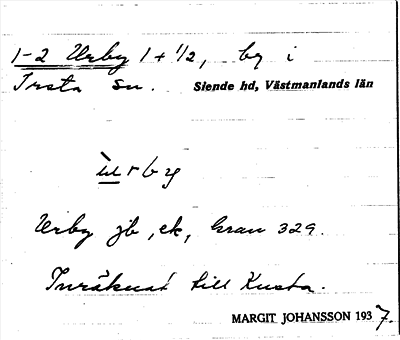 1-2 Urby 1 + 1/2, by i
Irsta sn. Siende hd, Västmanlands län
ùrby
Urby jb, ek, Gran 329.
Inräknat till Kusta.
MARGIT JOHANSSON 1937.